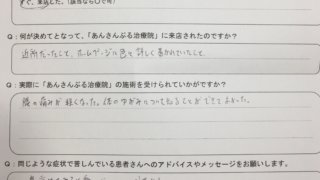 で、来店した。（該当なら○で可）
Q：何が決めてとなって、「あんさんぶる治療院」に来店されたのですか？
近所だったこと、ホームページに色々詳しく書かれていたこと。
Q：実際に「あんさんぶる治療院」の施術を受けられていかがですか？
腰の痛みが軽くなった。体のゆがみについても知ることができてよかった。
Q：同じような症状で苦しんでいる患者さんへのアドバイスやメッセージをお願いします。